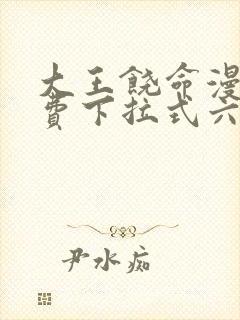 大王饶命漫
费下拉式六
尹水痴